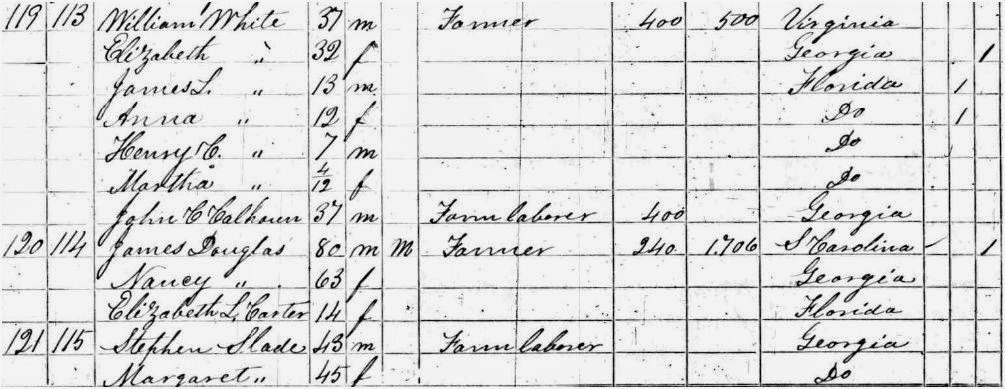 119 113 William White 37 m Farmer 400 500 Virginia
Elizabeth " 32 f Georgia 1
James L. " 13 m Florida 1
Anna " 12 f Do 1
Henry C. " 7 m Do
Martha " 4/12 f Do
John C Calhoun 37 m Farm laborer 400 Georgia
120 114 James Douglas 80 m M Farmer 240 1.706 S Carolina 1
Nancy " 63 f Georgia
Elizabeth L. Carter 14 f Florida
121 115 Stephen Slade 43 m Farm laborer Georgia
Margaret " 45 f Do